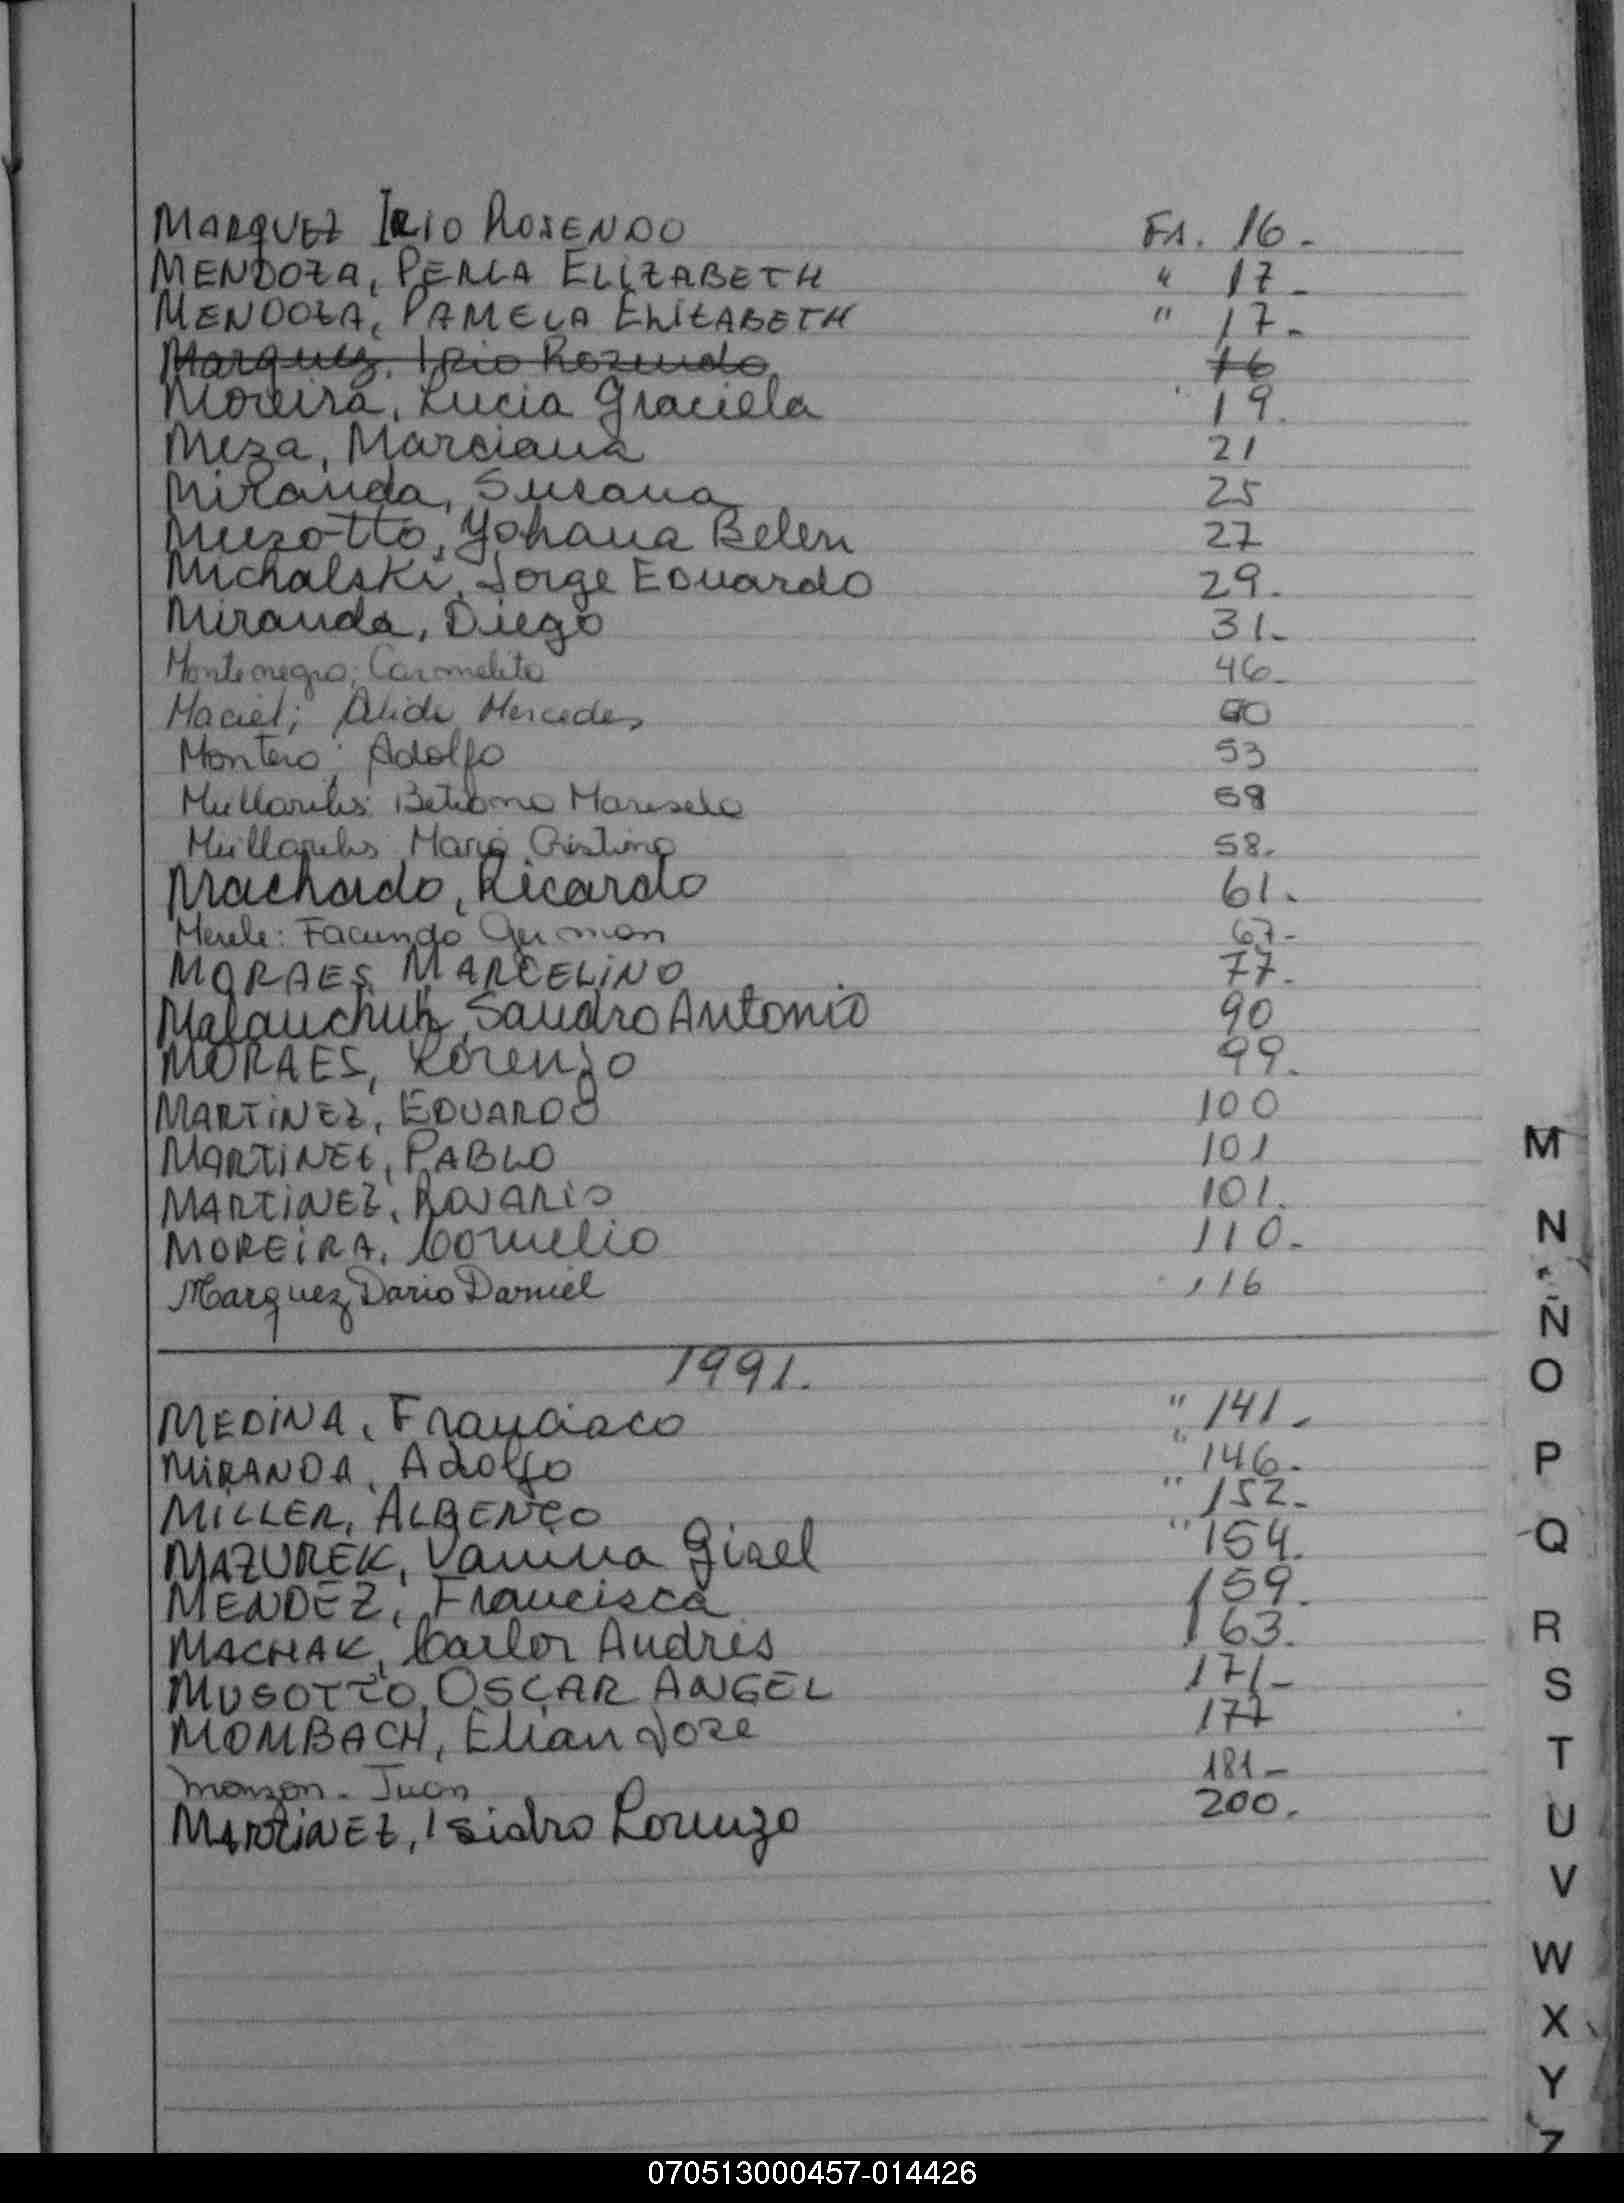 MARQUEZ IRIO ROSENDO Fs. 16.-
MENDOZA, PERLA ELIZABETH " 17.-
MENDOZA, PAMELA ELIZABETH " 17.-
Marquez, Irio Rozendo 16
Moreira, Lucia Graciela 19.
Meza, Marciana 21
Miranda, Susana 25
Muzotto, Yohana Belen 27
Michalski, Jorge Eduardo 29.
Miranda, Diego 31.-
Montenegro; Carmelita 46.-
Maciel; Alide Mercedes
Montero; Adolfo 53
Betiana Marisela
Maria Cristina 58.
Machado, Ricardo 61.
Merele: Facundo German 67.-
MORAES MARCELINO 77.
Malanchuk, Sandro Antonio 90
MORAES, Lorenzo 99.
MARTINEZ, EDUARDO 100
MARTINEZ, PABLO 101
MARTINEZ, ROSARIO 101.
MOREIRA, Cornelio 110.
Marquez Dario Daniel 116
1991.
MEDINA, Francisco " 141.
MIRANDA, Adolfo " 146.
MILLER, ALBENÇO " 152.-
MAZUREK, Vanina Gisel " 154.
MENDEZ, Francisca 159.
MACHAK, Carlos Andrés 163.
MUSOTTO, OSCAR ANGEL 171.-
MOMBACH, Elian Jose 177
Monzon - Juan 181 -
MARTINEZ, Isidro Lorenzo 200.
M
N
Ñ
O
P
Q
R
S
T
U
V
W
X
Y
Z
070513000457-014426